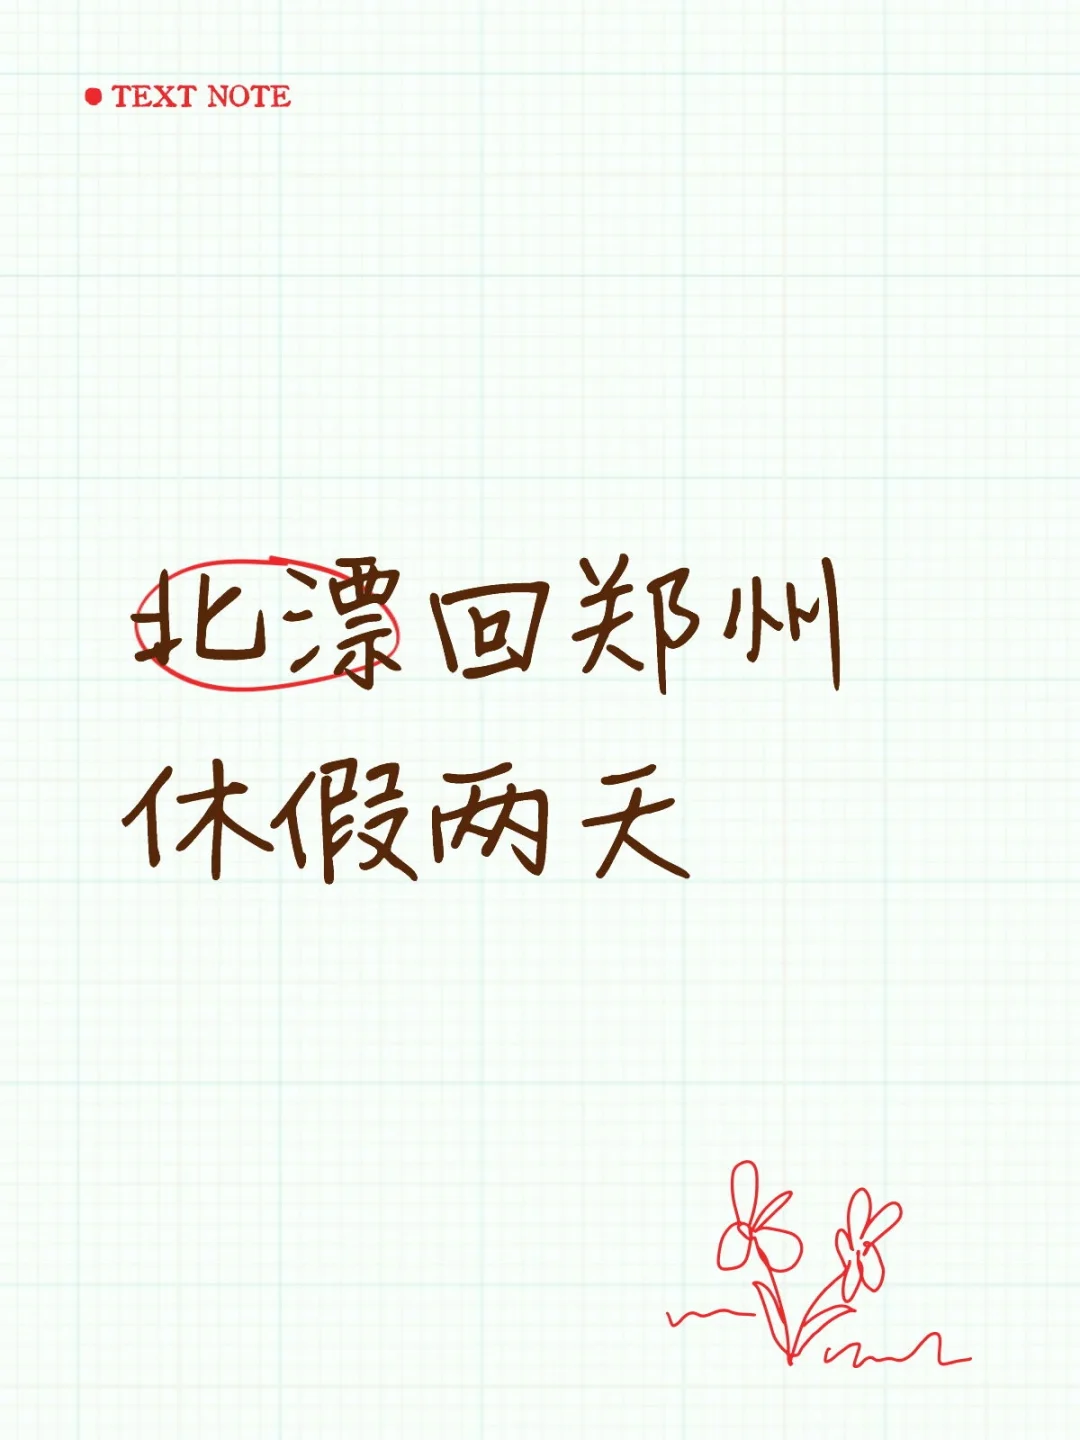 TEXT NOTE
北漂回郑州
休假两天